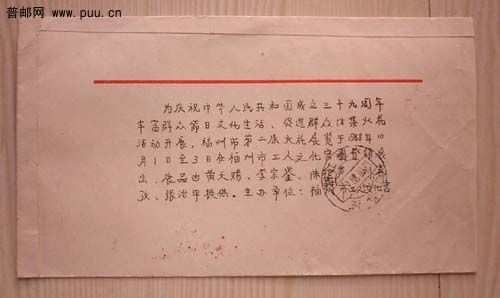 普邮网 www.puu.cn
为庆祝中华人民共和国成立三十九周年
丰富群众节日文化生活、促进群众性集火花
活动开展，福州市第二届火花展览于1988年10
月1日至3日在福州市工人文化宫 展
出．展品由黄天赐、李宗鉴、陈
张治平提供。主办单位：福 市工人文化宫